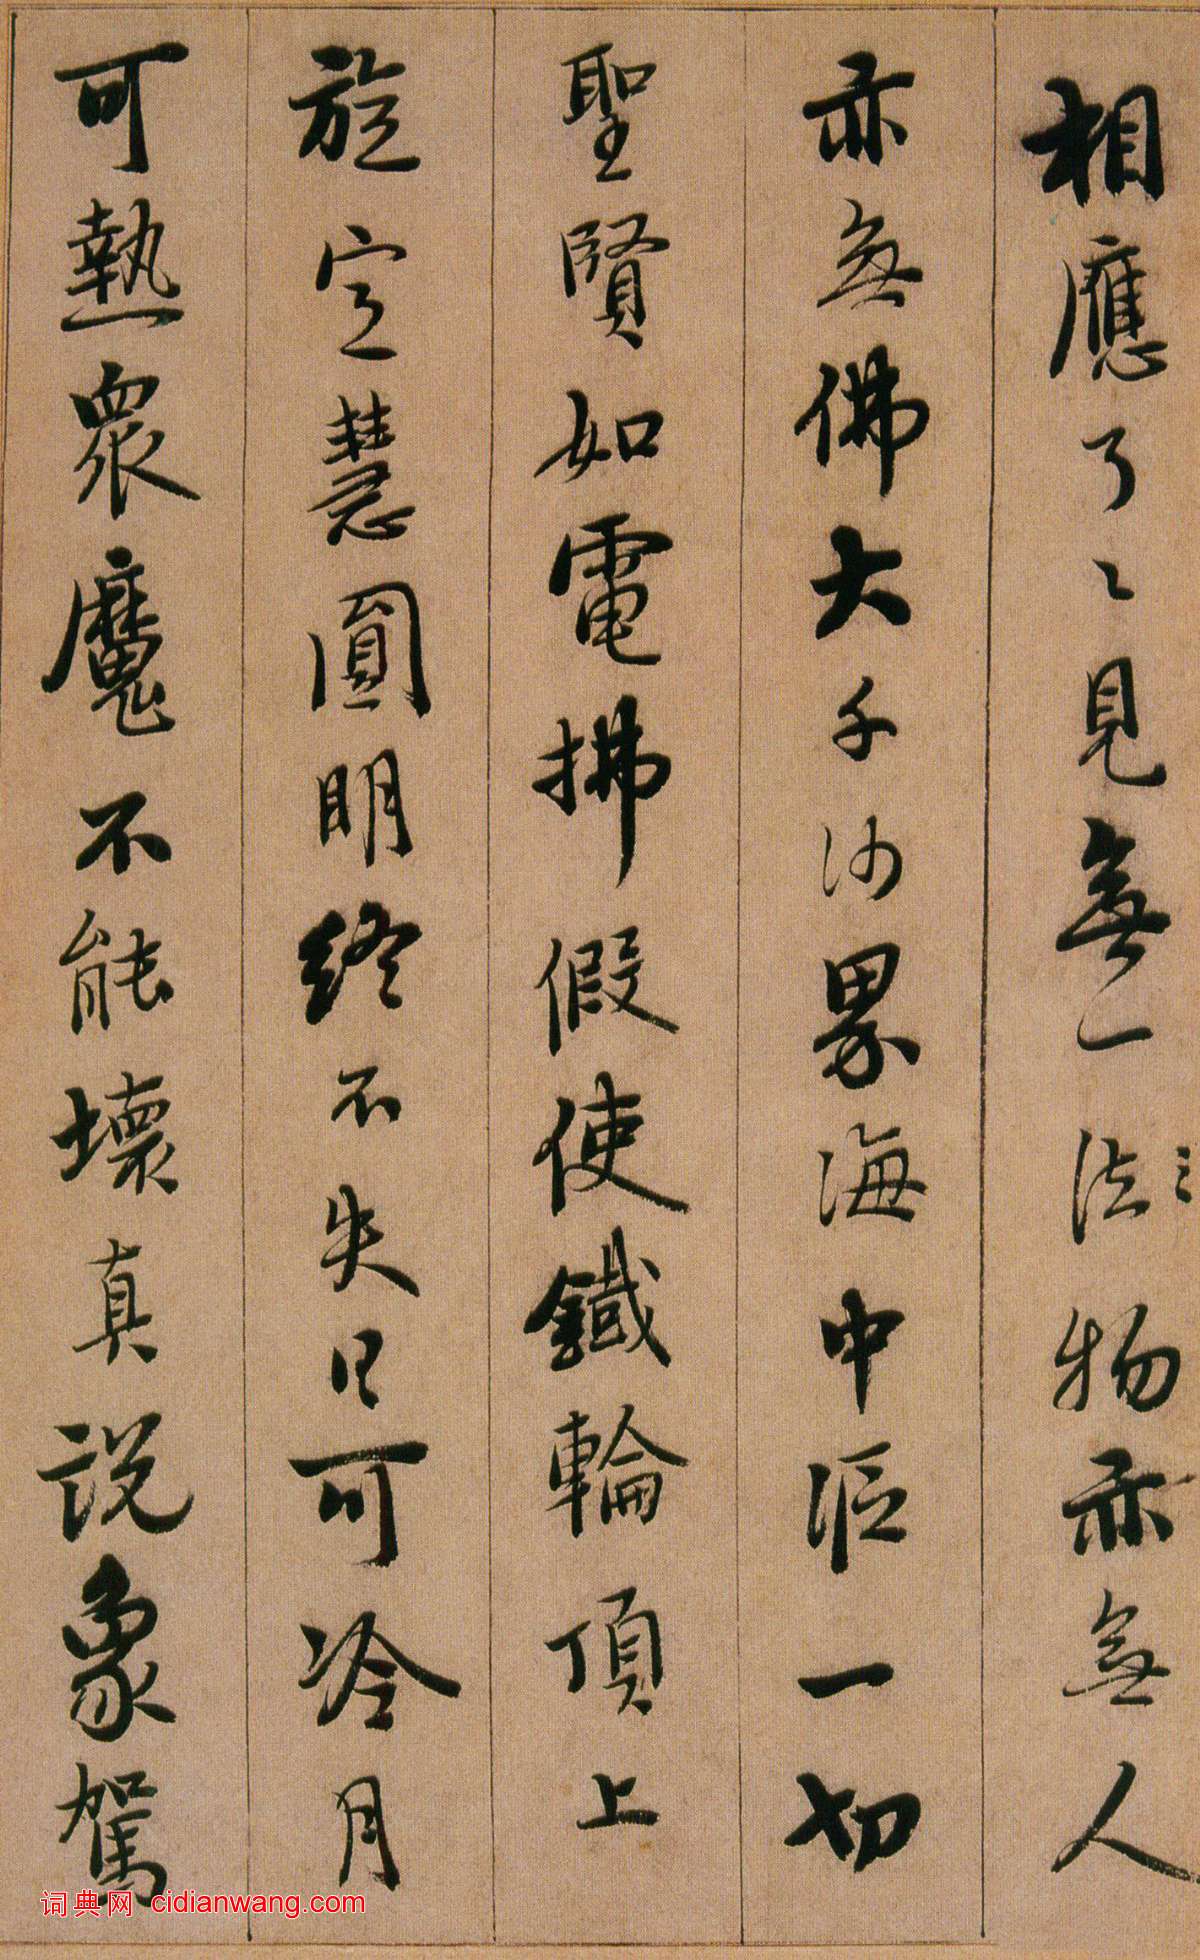 相應了〻見無一法物亦無人
亦無佛大千沙界海中漚一切
聖賢如電拂假使鐵輪頂上
旋定慧圓明終不失日可冷月
可熱眾魔不能壞真說象駕
词典网 cidianwang.com